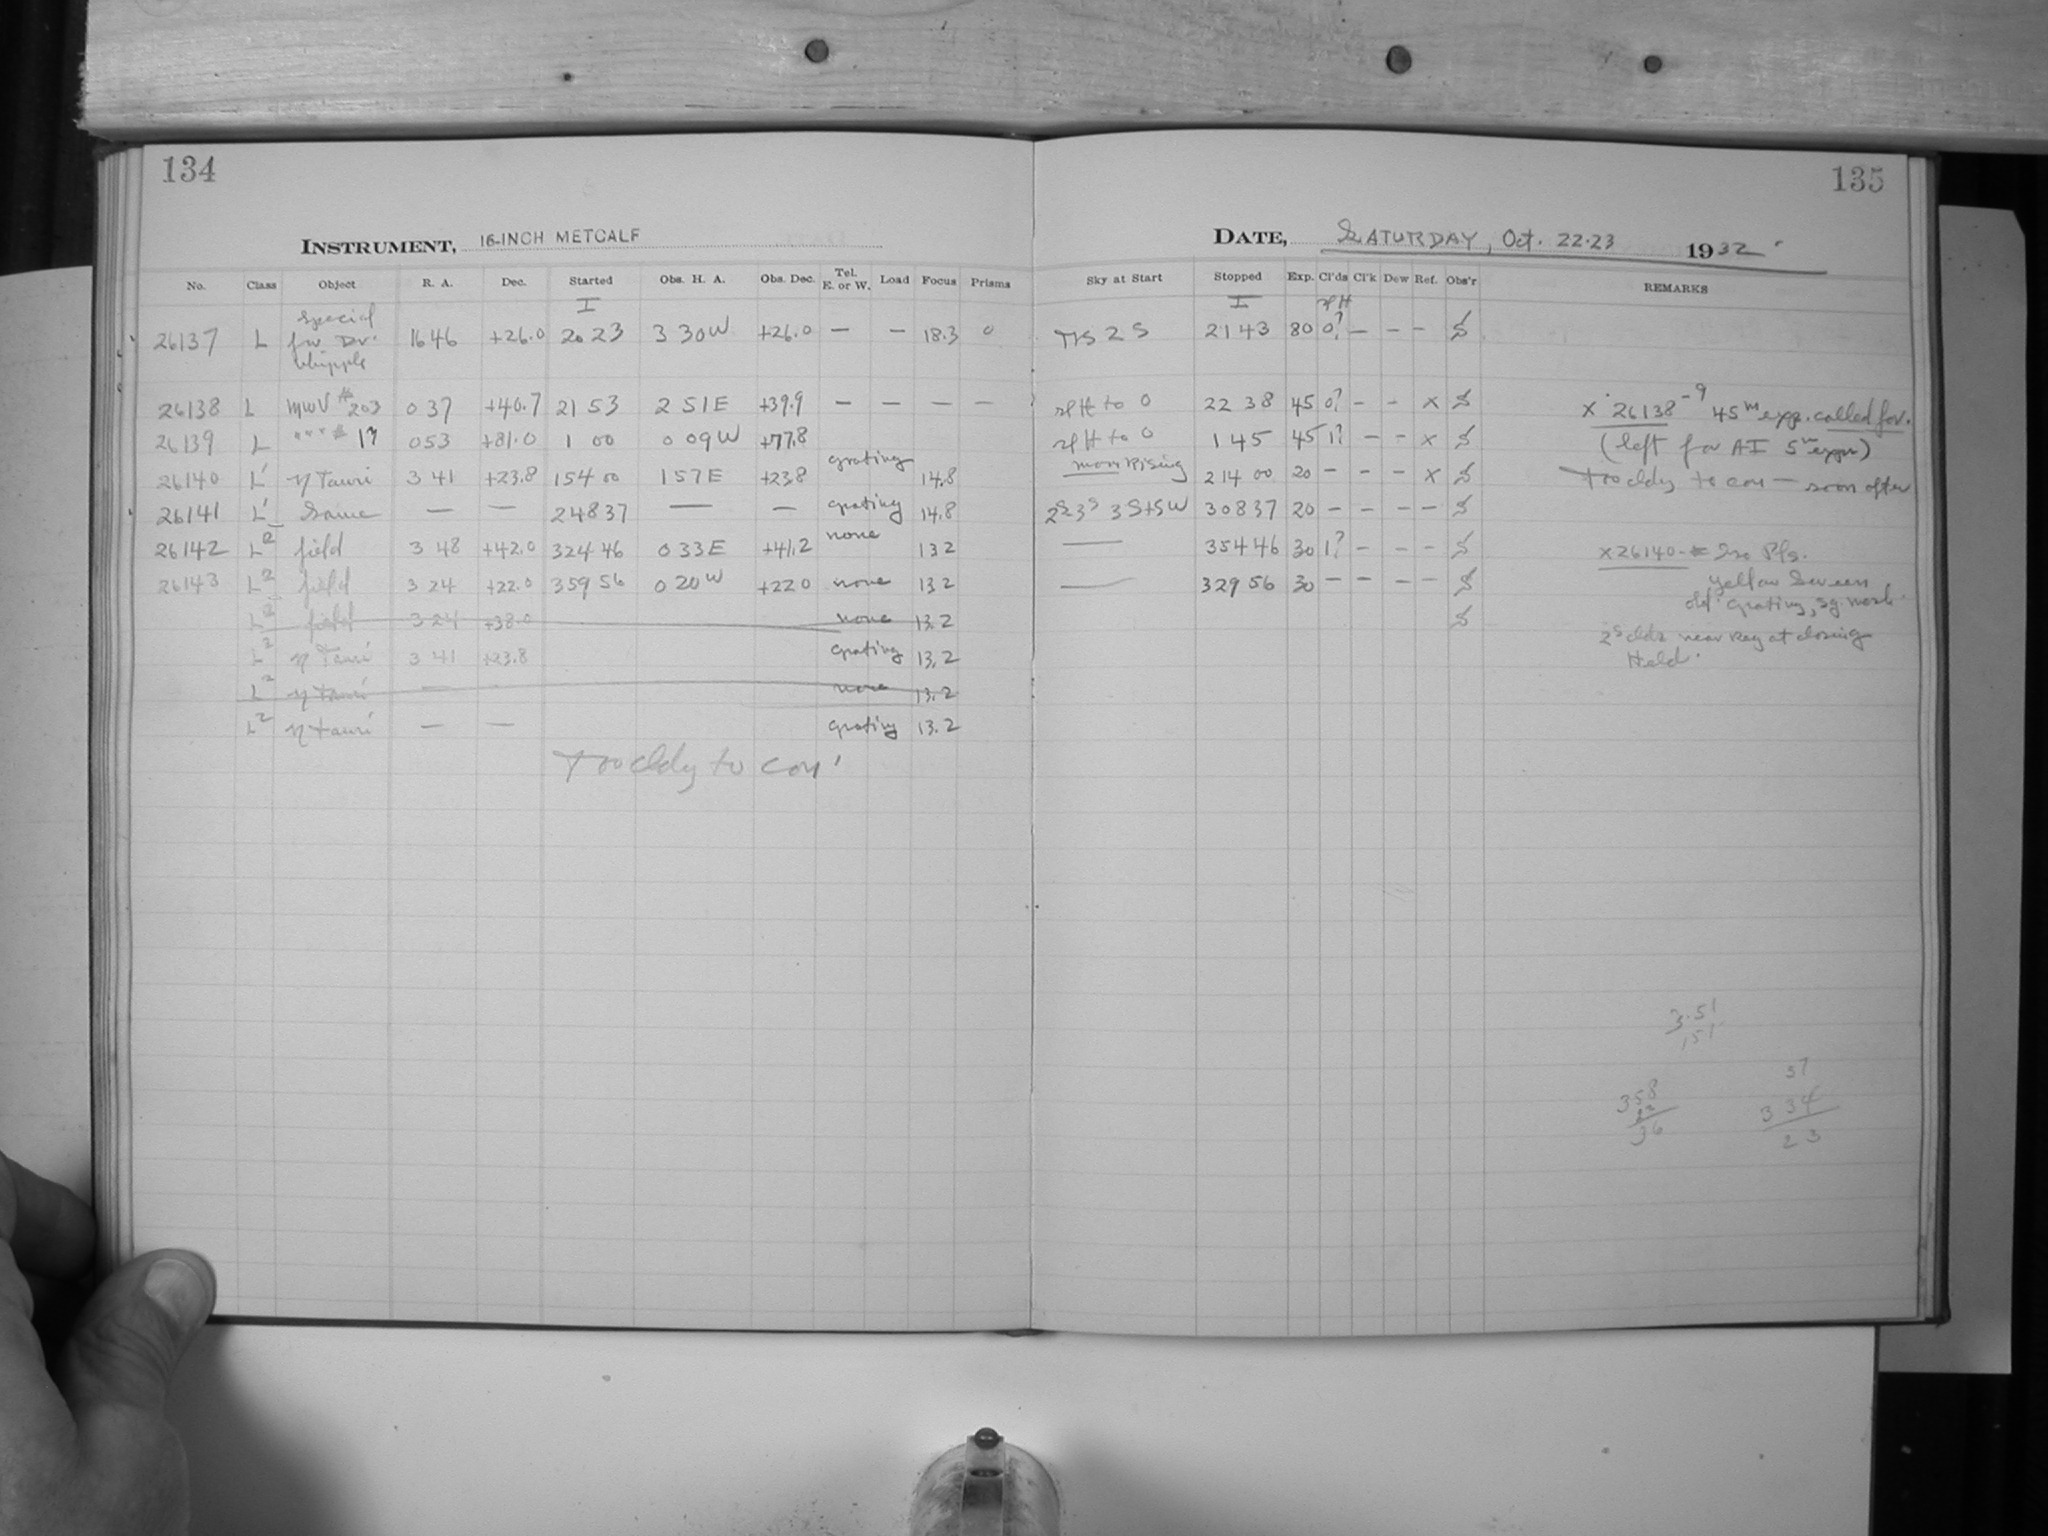 134
INSTRUMENT, 16-INCH METCALF
No. Class Object R. A. Dec. Started Obs. H. A. Obs. Dec. Tel. E. or W. Load Focus Prisms
I
26137 L Special for Dr. Whipple 16 46 +26.0 20 23 3 30 W +26.0 — — 18.3 0
26138 L MWV #203 0 37 +40.7 21 53 2 51 E +39.9 — — — —
26139 L " " " # 17 0 53 +81.0 1 00 0 09 W +77.8
26140 L' η Tauri 3 41 +23.8 1 54 00 1 57 E +23.8 grating 14.8
26141 L' Same — — 2 48 37 — — grating 14.8
26142 L2 field 3 48 +42.0 3 24 46 0 33 E +41.2 none 13 2
26143 L2 field 3 24 +22.0 3 59 56 0 20 W +22 0 none 13 2
L2 field 3 24 +38.0 none 13.2
L2 η Tauri 3 41 +23.8 grating 13.2
L2 η Tauri — — none 13.2
L2 η Tauri — — grating 13.2
Too cldy to con'
135
DATE, SATURDAY, Oct. 22-23 1932
Sky at Start Stopped Exp. Cl'ds Cl'k Dew Ref. Obs'r REMARKS
I
2 S 21 43 80 0? — — —
to 0 22 38 45 0? — — x
to 0 1 45 45 1? — — x
moon rising 2 14 00 20 — — — x
2s 3s 3 S+SW 3 08 37 20 — — — —
— 3 54 46 30 1? — — —
— 3 29 56 30 — — — —
x 26138-9 45m exp. called for.
(left for AI 5m expr)
Too cldy to con — soon after
x26140- Iso Pls.
yellow Screen
old grating, sq. mesh.
2s clds near Reg at closing
Held.
3.51
151
358
36
57
3 34
2 3